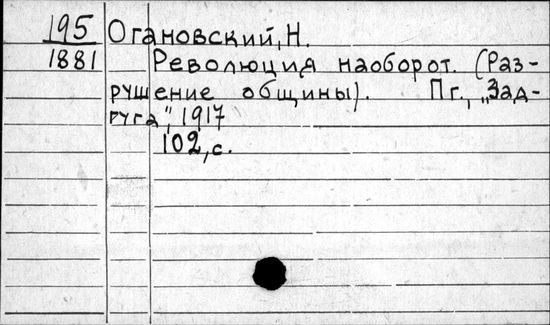 195 Огановский, Н.
1881 Революция наоборот. (Раз-
рушение общины). Пг., „Зад-
руга", 1917
102, с.